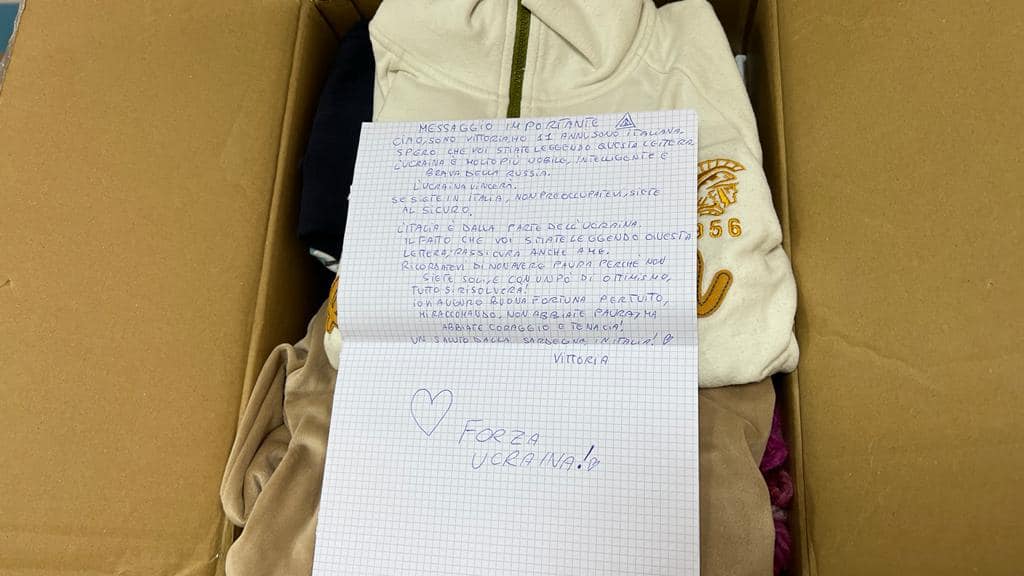 MESSAGGIO IMPORTANTE
CIAO, SONO VITTORIA, HO 11 ANNI, SONO ITALIANA.
SPERO CHE VOI STIATE LEGGENDO QUESTA LETTERA
L'UCRAINA È MOLTO PIÙ NOBILE, INTELLIGENTE E
BRAVA DELLA RUSSIA.
L'UCRAINA VINCERÀ.
SE SIETE IN ITALIA, NON PREOCCUPATEVI, SIETE
AL SICURO.
L'ITALIA È DALLA PARTE DELL'UCRAINA.
IL FATTO CHE VOI STIATE LEGGENDO QUESTA
LETTERA, RASSICURA ANCHE A ME.
RICORDATEVI DI NON AVERE PAURA PERCHÈ NON
SIETE SOLI, E CON UN PO' DI OTTIMISMO,
TUTTO SI RISOLVERÀ!
IO VI AUGURO BUONA FORTUNA PER TUTTO,
MI RACCOMANDO, NON ABBIATE PAURA, MA
ABBIATE CORAGGIO E TENACIA!
UN SALUTO DALLA SARDEGNA IN ITALIA!
VITTORIA
FORZA
UCRAINA!
956